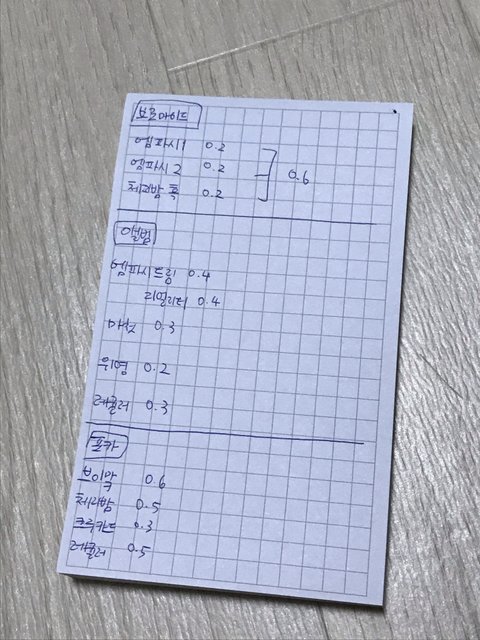 브로마이드
엠파시1 0.2
엠파시2 0.2
체리밤 폭 0.2
0.6
앨범
엠파시 드림 0.4
리얼리티 0.4
0.3
위영 0.2
레귤러 0.3
포카
브이앞 0.6
체리밤 0.5
트릭카드 0.3
레귤러 0.5